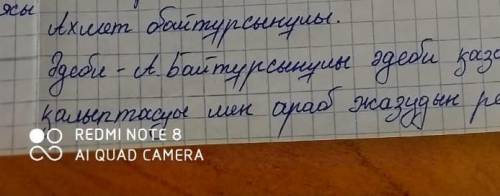 ясы
Ахмет байтурсынулы.
Әдеби - А. Байтурсынулы әдеби қаза
қалыптасуы мен араб жазудын ре
REDMI NOTE 8
AI QUAD CAMERA